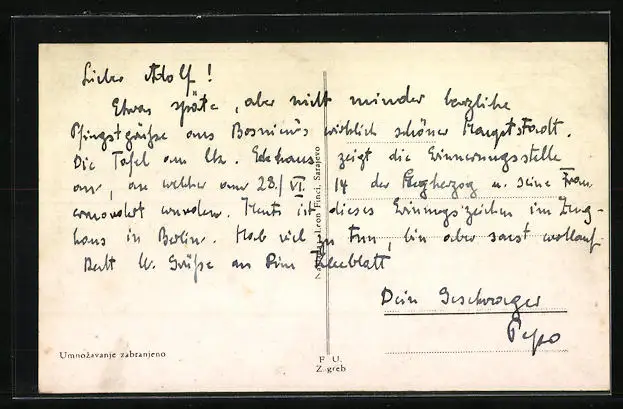 Lieber Adolf!
Etwas späte, aber nicht minder herzliche
Pfingstgrüße aus Bosniens wirklich schöner Hauptstadt.
Die Tafel am lk. Eckhaus zeigt die Erinnerungsstelle
an, an welcher am 28./VI. 14 der Erzherzog u. seine Frau
ermordet wurden. Heute ist dieses Erinnungszeichen im Zeug-
haus in Berlin. Hab viel zu tun, bin aber sonst wohlauf.
Grüße an
Dein Geschwager
Pepo
Naklada Leon Finci, Sarajevo
Umnožavanje zabranjeno
F. U.
Zagreb